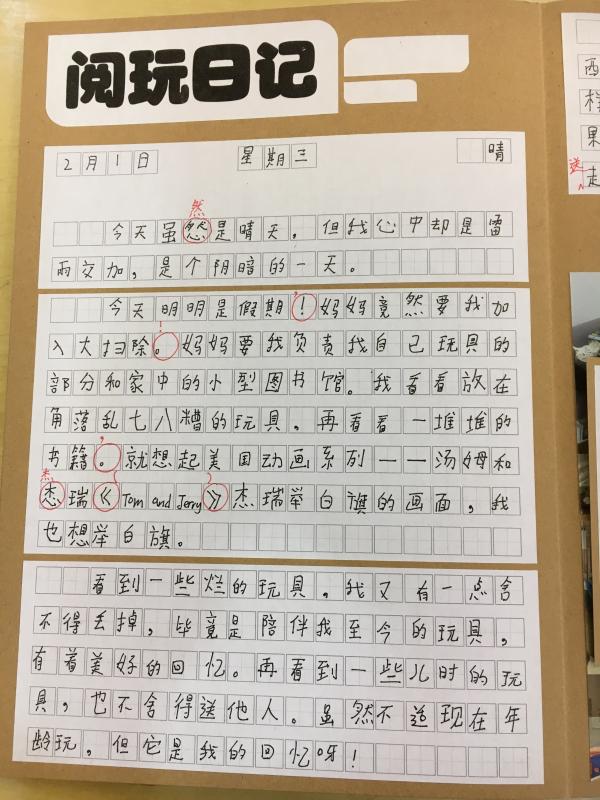 阅玩日记
2月1日 星期三 晴
然
今天虽然是晴天，但我心中却是雷
雨交加，是个阴暗的一天。
今天明明是假期！妈妈竟然要我加
入大扫除。妈妈要我负责我自己玩具的
部分和家中的小型图书馆。我看看放在
角落乱七八糟的玩具，再看看一堆堆的
书籍。就想起美国动画系列——汤姆和
杰
杰瑞《Tom and Jerry》杰瑞举白旗的画面，我
也想举白旗。
看到一些烂的玩具，我又有一点舍
不得丢掉，毕竟是陪伴我至今的玩具，
有着美好的回忆。再看到一些儿时的玩
具，也不舍得送他人。虽然不适现在年
龄玩，但它是我的回忆呀！
西
样
果
送
走